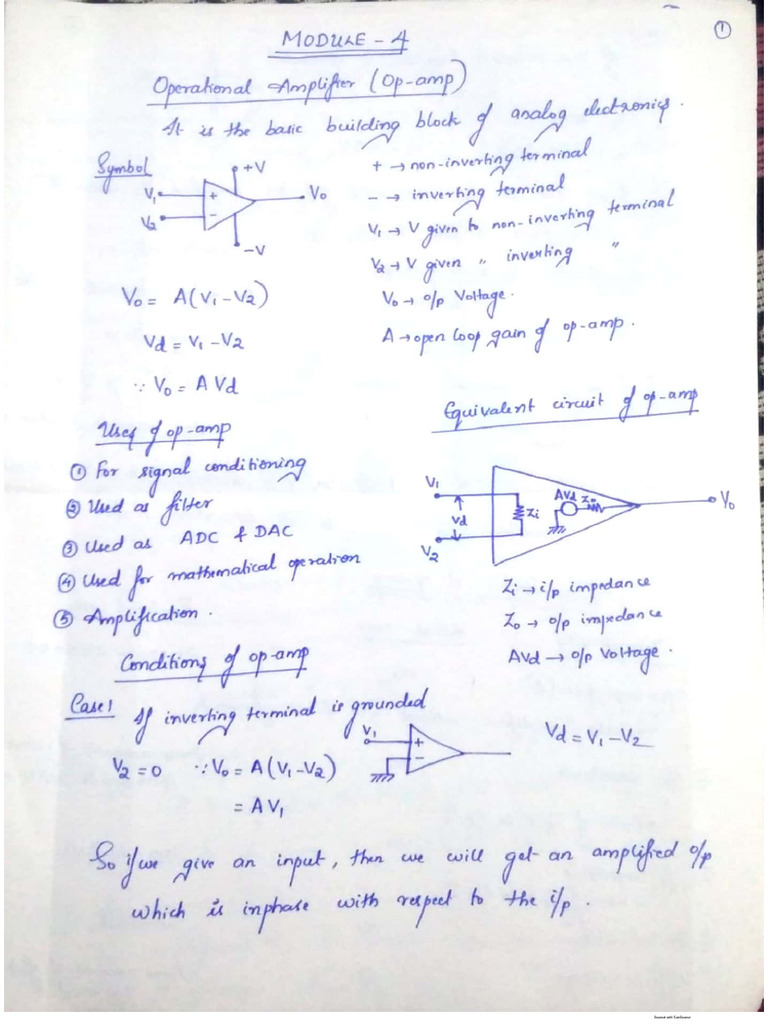 ①
MODULE - 4
Operational Amplifier (Op-amp)
It is the basic building block of analog electronics.
Symbol
+V
V₁
+
V₂
-
Vo
-V
+ → non-inverting terminal
- → inverting terminal
V₁ → V given to non-inverting terminal
V₂ → V given " inverting "
Vo → o/p Voltage.
A → open loop gain of op-amp.
Vo = A(V₁ - V₂)
Vd = V₁ - V₂
∵ Vo = A Vd
Uses of op-amp
① For signal conditioning
② Used as filter
③ Used as ADC & DAC
④ Used for mathematical operation
⑤ Amplification.
Equivalent circuit of op-amp
V₁
Vd
V₂
Zi
AVd Zo
Vo
Zi → i/p impedance
Zo → o/p impedance
AVd → o/p Voltage.
Conditions of op-amp
Case 1 If inverting terminal is grounded
V₂ = 0 ∵ Vo = A(V₁ - V₂)
= AV₁
V₁
+
-
Vd = V₁ - V₂
So if we give an input, then we will get an amplified o/p
which is inphase with respect to the i/p.